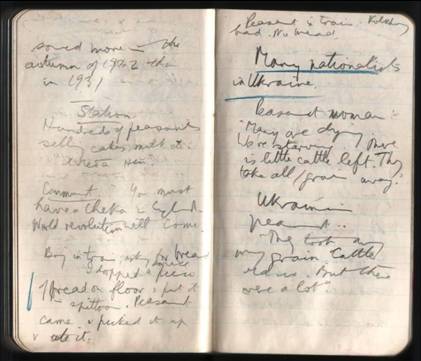 sowed more in the
autumn of 1932 than
in 1931
Station
Hundreds of peasants
selling cakes milk etc
Comment. You must
have a Cheka in England.
World revolution will come.
Boy in train asking for bread
I dropped a piece
of bread on floor & put it
in spittoon. Peasant
came & picked it up
& ate it.
Peasant in train.
had. No bread.
Many nationalists
in Ukraine.
Peasant woman:
"Many are dying there
We're starving
is little cattle left. They
take all grain away."
Ukrainian
peasant..
"They took away
my grain cattle
But there
were a lot"